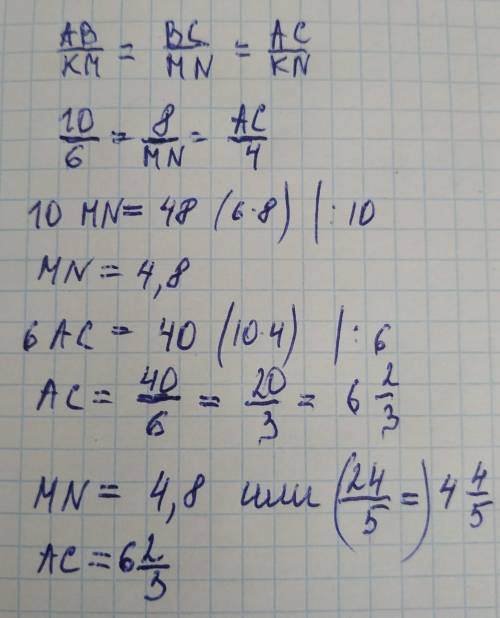 AB/KM = BC/MN = AC/KN
10/6 = 8/MN = AC/4
10 MN = 48 (6·8) | : 10
MN = 4,8
6 AC = 40 (10·4) | : 6
AC = 40/6 = 20/3 = 6 2/3
MN = 4,8 или (24/5 =) 4 4/5
AC = 6 2/3